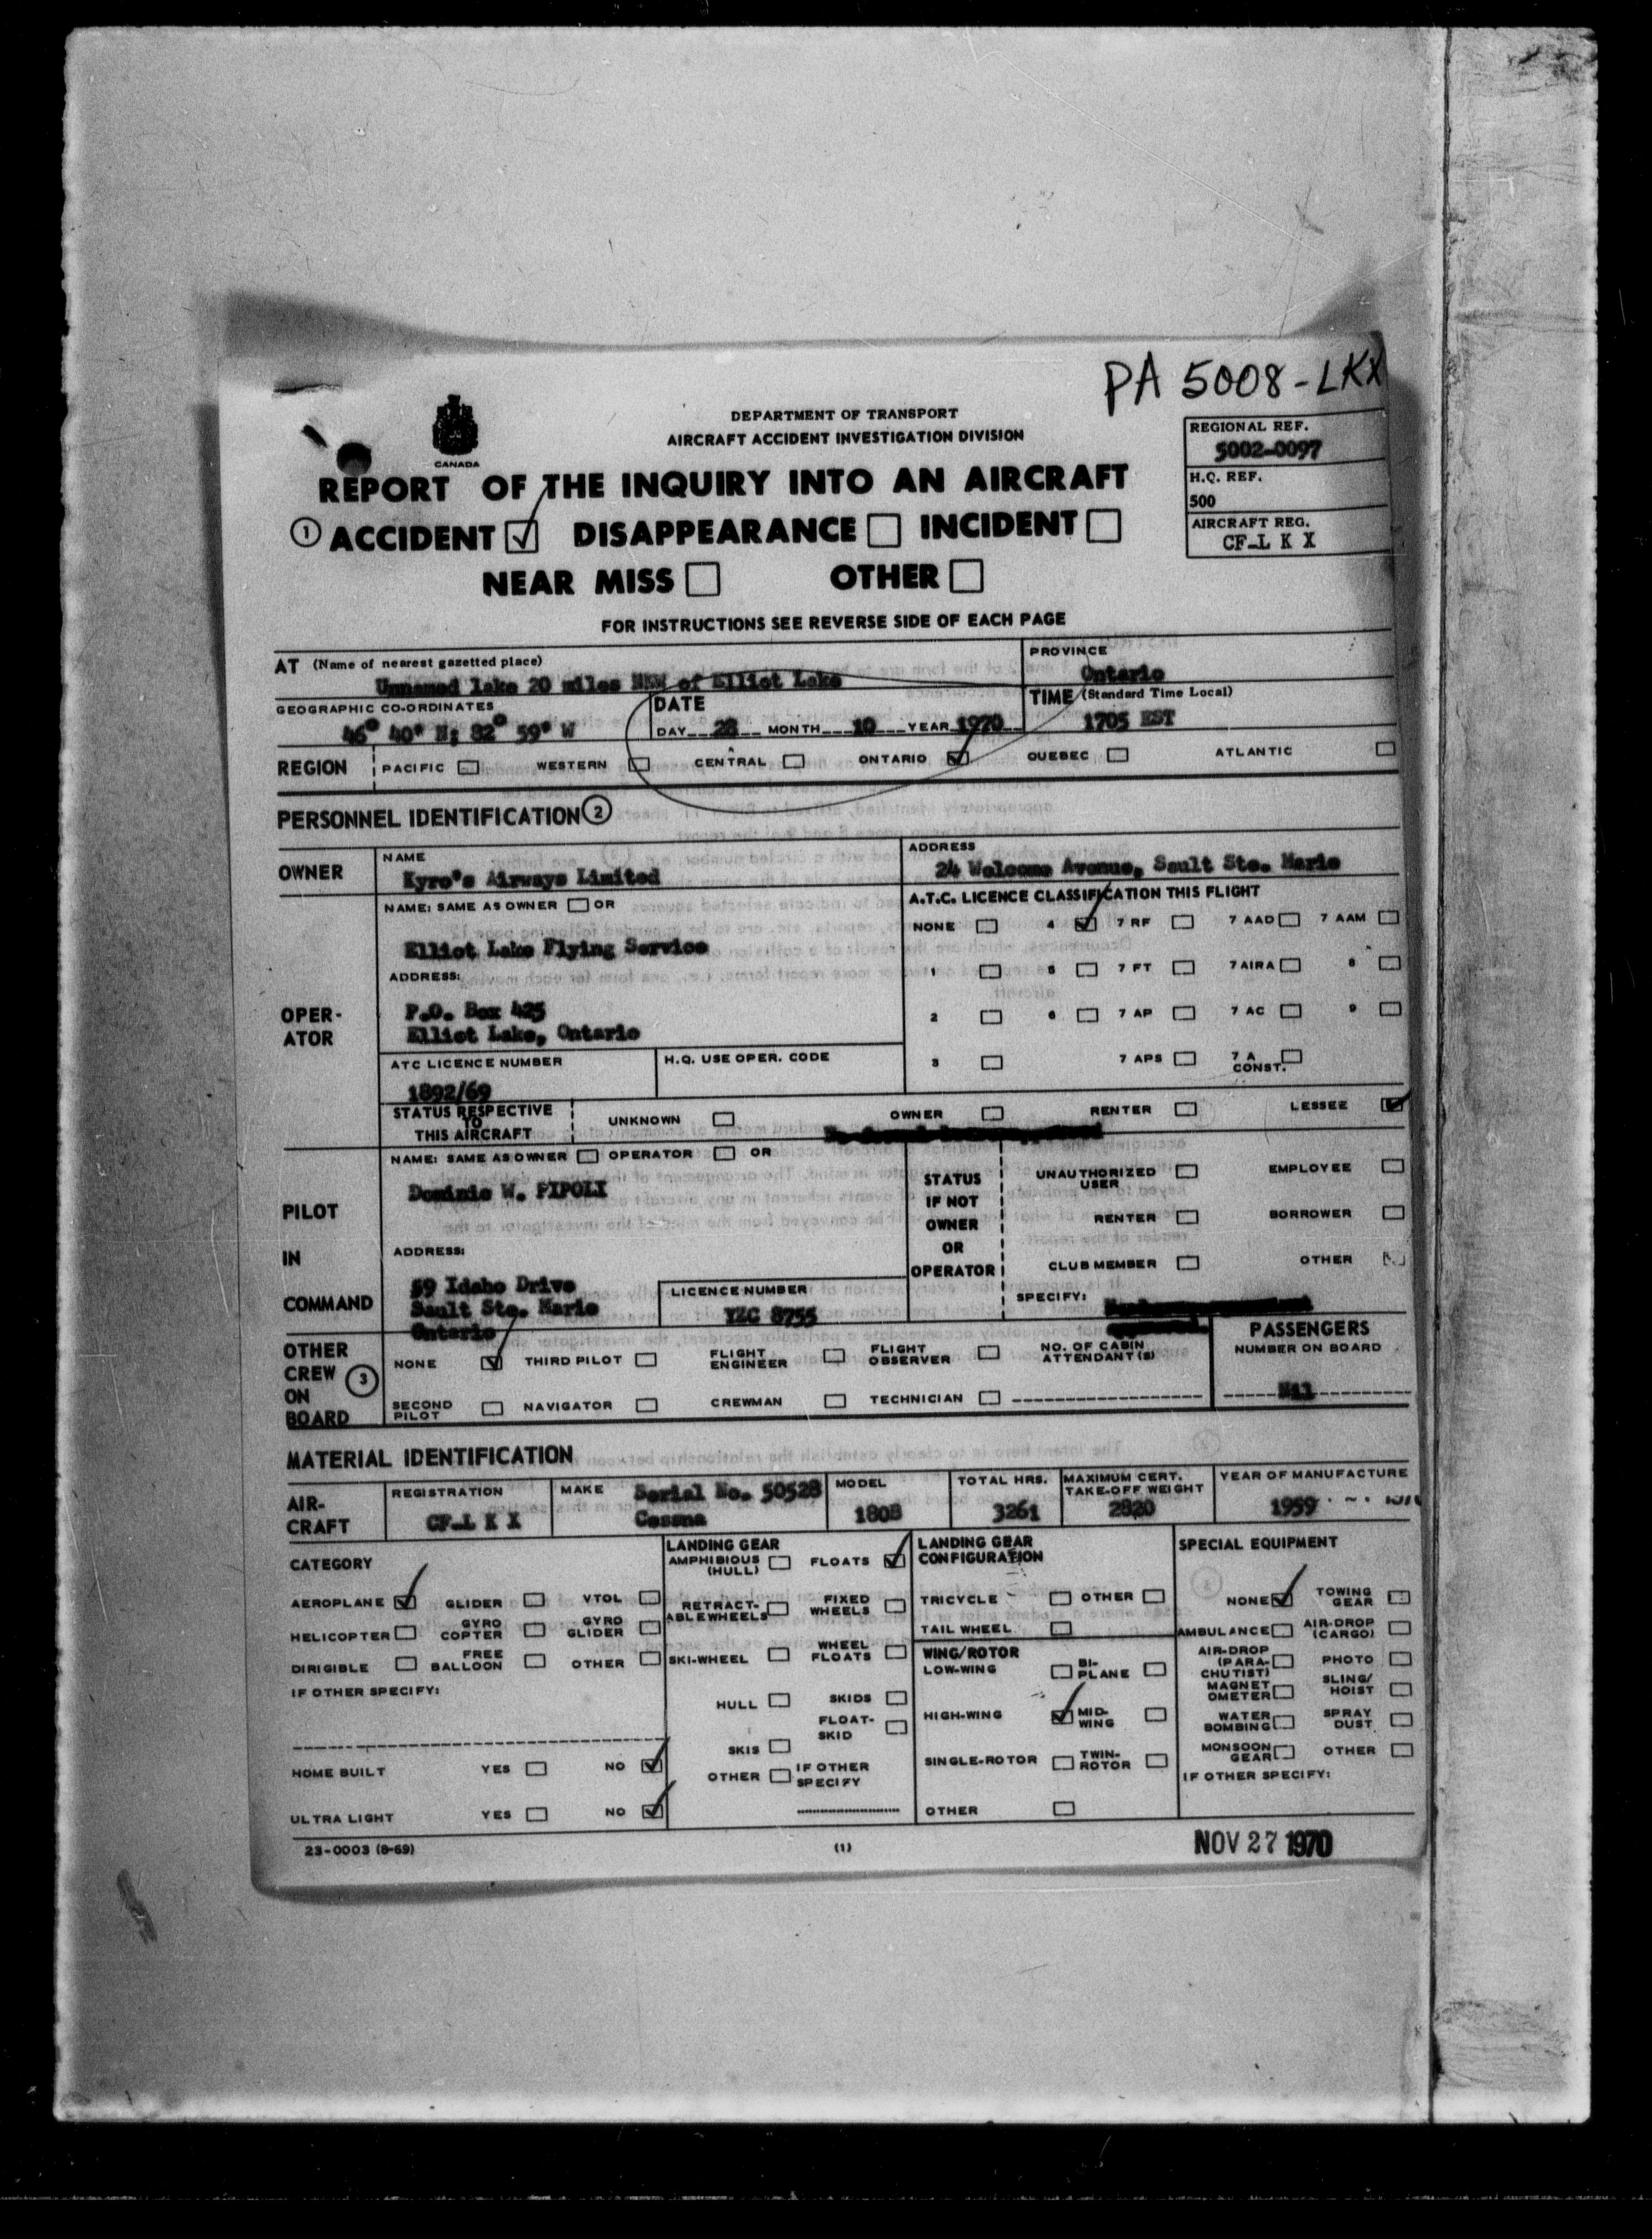 PA 5008-LKX
CANADA
DEPARTMENT OF TRANSPORT
AIRCRAFT ACCIDENT INVESTIGATION DIVISION
REPORT OF THE INQUIRY INTO AN AIRCRAFT
① ACCIDENT ☑ DISAPPEARANCE ☐ INCIDENT ☐
NEAR MISS ☐ OTHER ☐
REGIONAL REF.
5002-0097
H.Q. REF.
500
AIRCRAFT REG.
CF-L K X
FOR INSTRUCTIONS SEE REVERSE SIDE OF EACH PAGE
AT (Name of nearest gazetted place)
Unnamed lake 20 miles NNW of Elliot Lake
PROVINCE
Ontario
GEOGRAPHIC CO-ORDINATES
46° 40' N; 82° 59' W
DATE
DAY 28 MONTH 10 YEAR 1970
TIME (Standard Time Local)
1705 EST
REGION PACIFIC ☐ WESTERN ☐ CENTRAL ☐ ONTARIO ☑ QUEBEC ☐ ATLANTIC ☐
PERSONNEL IDENTIFICATION ②
OWNER
NAME
Kyro's Airways Limited
ADDRESS
24 Welcome Avenue, Sault Ste. Marie
OPER-
ATOR
NAME: SAME AS OWNER ☐ OR
Elliot Lake Flying Service
ADDRESS:
P.O. Box 425
Elliot Lake, Ontario
ATC LICENCE NUMBER
1892/69
H.Q. USE OPER. CODE
A.T.C. LICENCE CLASSIFICATION THIS FLIGHT
NONE ☐ 4 ☑ 7 RF ☐ 7 AAD ☐ 7 AAM ☐
1 ☐ 5 ☐ 7 FT ☐ 7 AIRA ☐ 8 ☐
2 ☐ 6 ☐ 7 AP ☐ 7 AC ☐ 9 ☐
3 ☐ 7 APS ☐ 7 A CONST. ☐
STATUS RESPECTIVE
TO
THIS AIRCRAFT
UNKNOWN ☐ OWNER ☐ RENTER ☐ LESSEE ☑
PILOT
IN
COMMAND
NAME: SAME AS OWNER ☐ OPERATOR ☐ OR
Dominic W. PIPOLI
ADDRESS:
59 Idaho Drive
Sault Ste. Marie
Ontario
LICENCE NUMBER
YZC 8755
STATUS
IF NOT
OWNER
OR
OPERATOR
UNAUTHORIZED USER ☐ EMPLOYEE ☐
RENTER ☐ BORROWER ☐
CLUB MEMBER ☐ OTHER ☐
SPECIFY:
OTHER
CREW ③
ON
BOARD
NONE ☑ THIRD PILOT ☐ FLIGHT ENGINEER ☐ FLIGHT OBSERVER ☐ NO. OF CABIN ATTENDANT(S)
SECOND PILOT ☐ NAVIGATOR ☐ CREWMAN ☐ TECHNICIAN ☐
PASSENGERS
NUMBER ON BOARD
Nil
MATERIAL IDENTIFICATION
AIR-
CRAFT
REGISTRATION
CF-L K X
MAKE Serial No. 50528
Cessna
MODEL
180B
TOTAL HRS.
3261
MAXIMUM CERT.
TAKE-OFF WEIGHT
2820
YEAR OF MANUFACTURE
1959
CATEGORY
AEROPLANE ☑ GLIDER ☐ VTOL ☐
HELICOPTER ☐ GYRO COPTER ☐ GYRO GLIDER ☐
DIRIGIBLE ☐ FREE BALLOON ☐ OTHER ☐
IF OTHER SPECIFY:
HOME BUILT YES ☐ NO ☑
ULTRA LIGHT YES ☐ NO ☑
LANDING GEAR
AMPHIBIOUS (HULL) ☐ FLOATS ☑
RETRACT-ABLE WHEELS ☐ FIXED WHEELS ☐
SKI-WHEEL ☐ WHEEL FLOATS ☐
HULL ☐ SKIDS ☐
FLOAT-SKID ☐
SKIS ☐
OTHER ☐ IF OTHER SPECIFY
LANDING GEAR
CONFIGURATION
TRICYCLE ☐ OTHER ☐
TAIL WHEEL ☐
WING/ROTOR
LOW-WING ☐ BI-PLANE ☐
HIGH-WING ☑ MID-WING ☐
SINGLE-ROTOR ☐ TWIN-ROTOR ☐
OTHER ☐
SPECIAL EQUIPMENT
NONE ☑ TOWING GEAR ☐
AMBULANCE ☐ AIR-DROP (CARGO) ☐
AIR-DROP (PARA-CHUTIST) ☐ PHOTO ☐
MAGNET OMETER ☐ SLING/HOIST ☐
WATER BOMBING ☐ SPRAY DUST ☐
MONSOON GEAR ☐ OTHER ☐
IF OTHER SPECIFY:
23-0003 (8-69)
(1)
NOV 27 1970